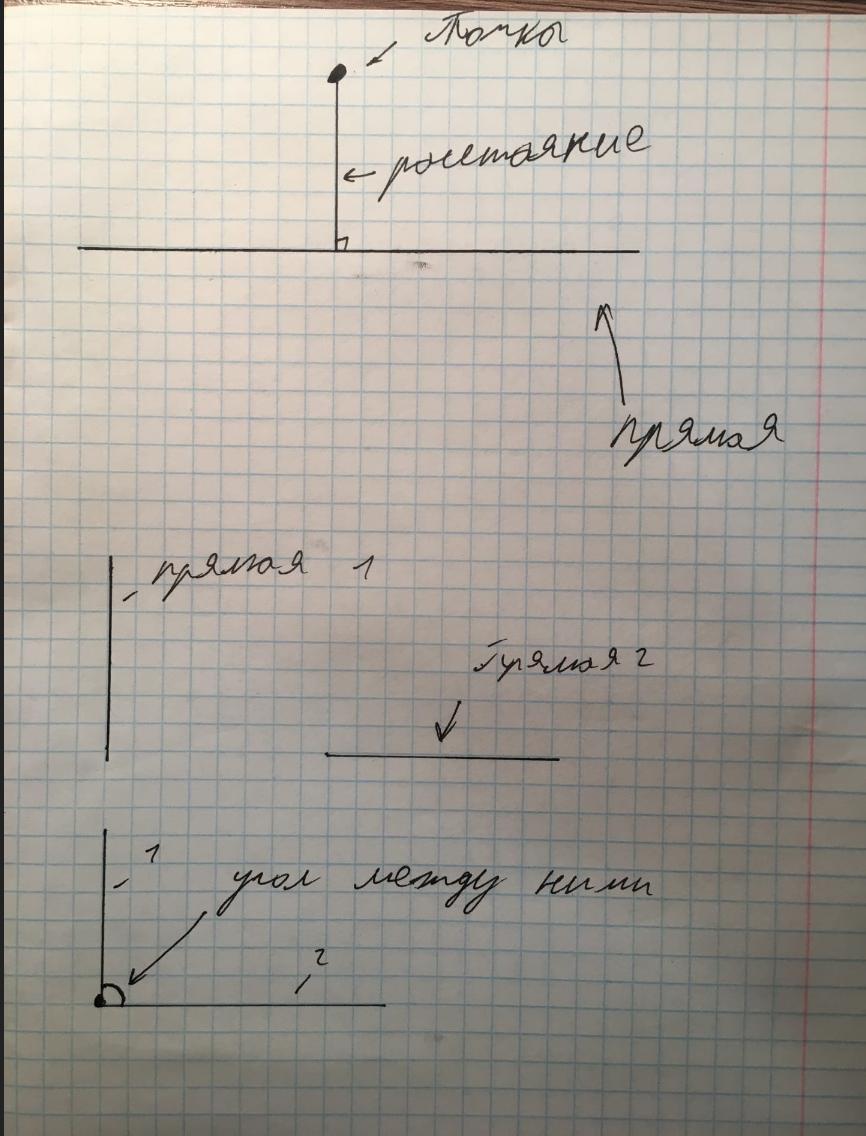 Точка
расстояние
прямая
прямая 1
прямая 2
1
угол между ними
2